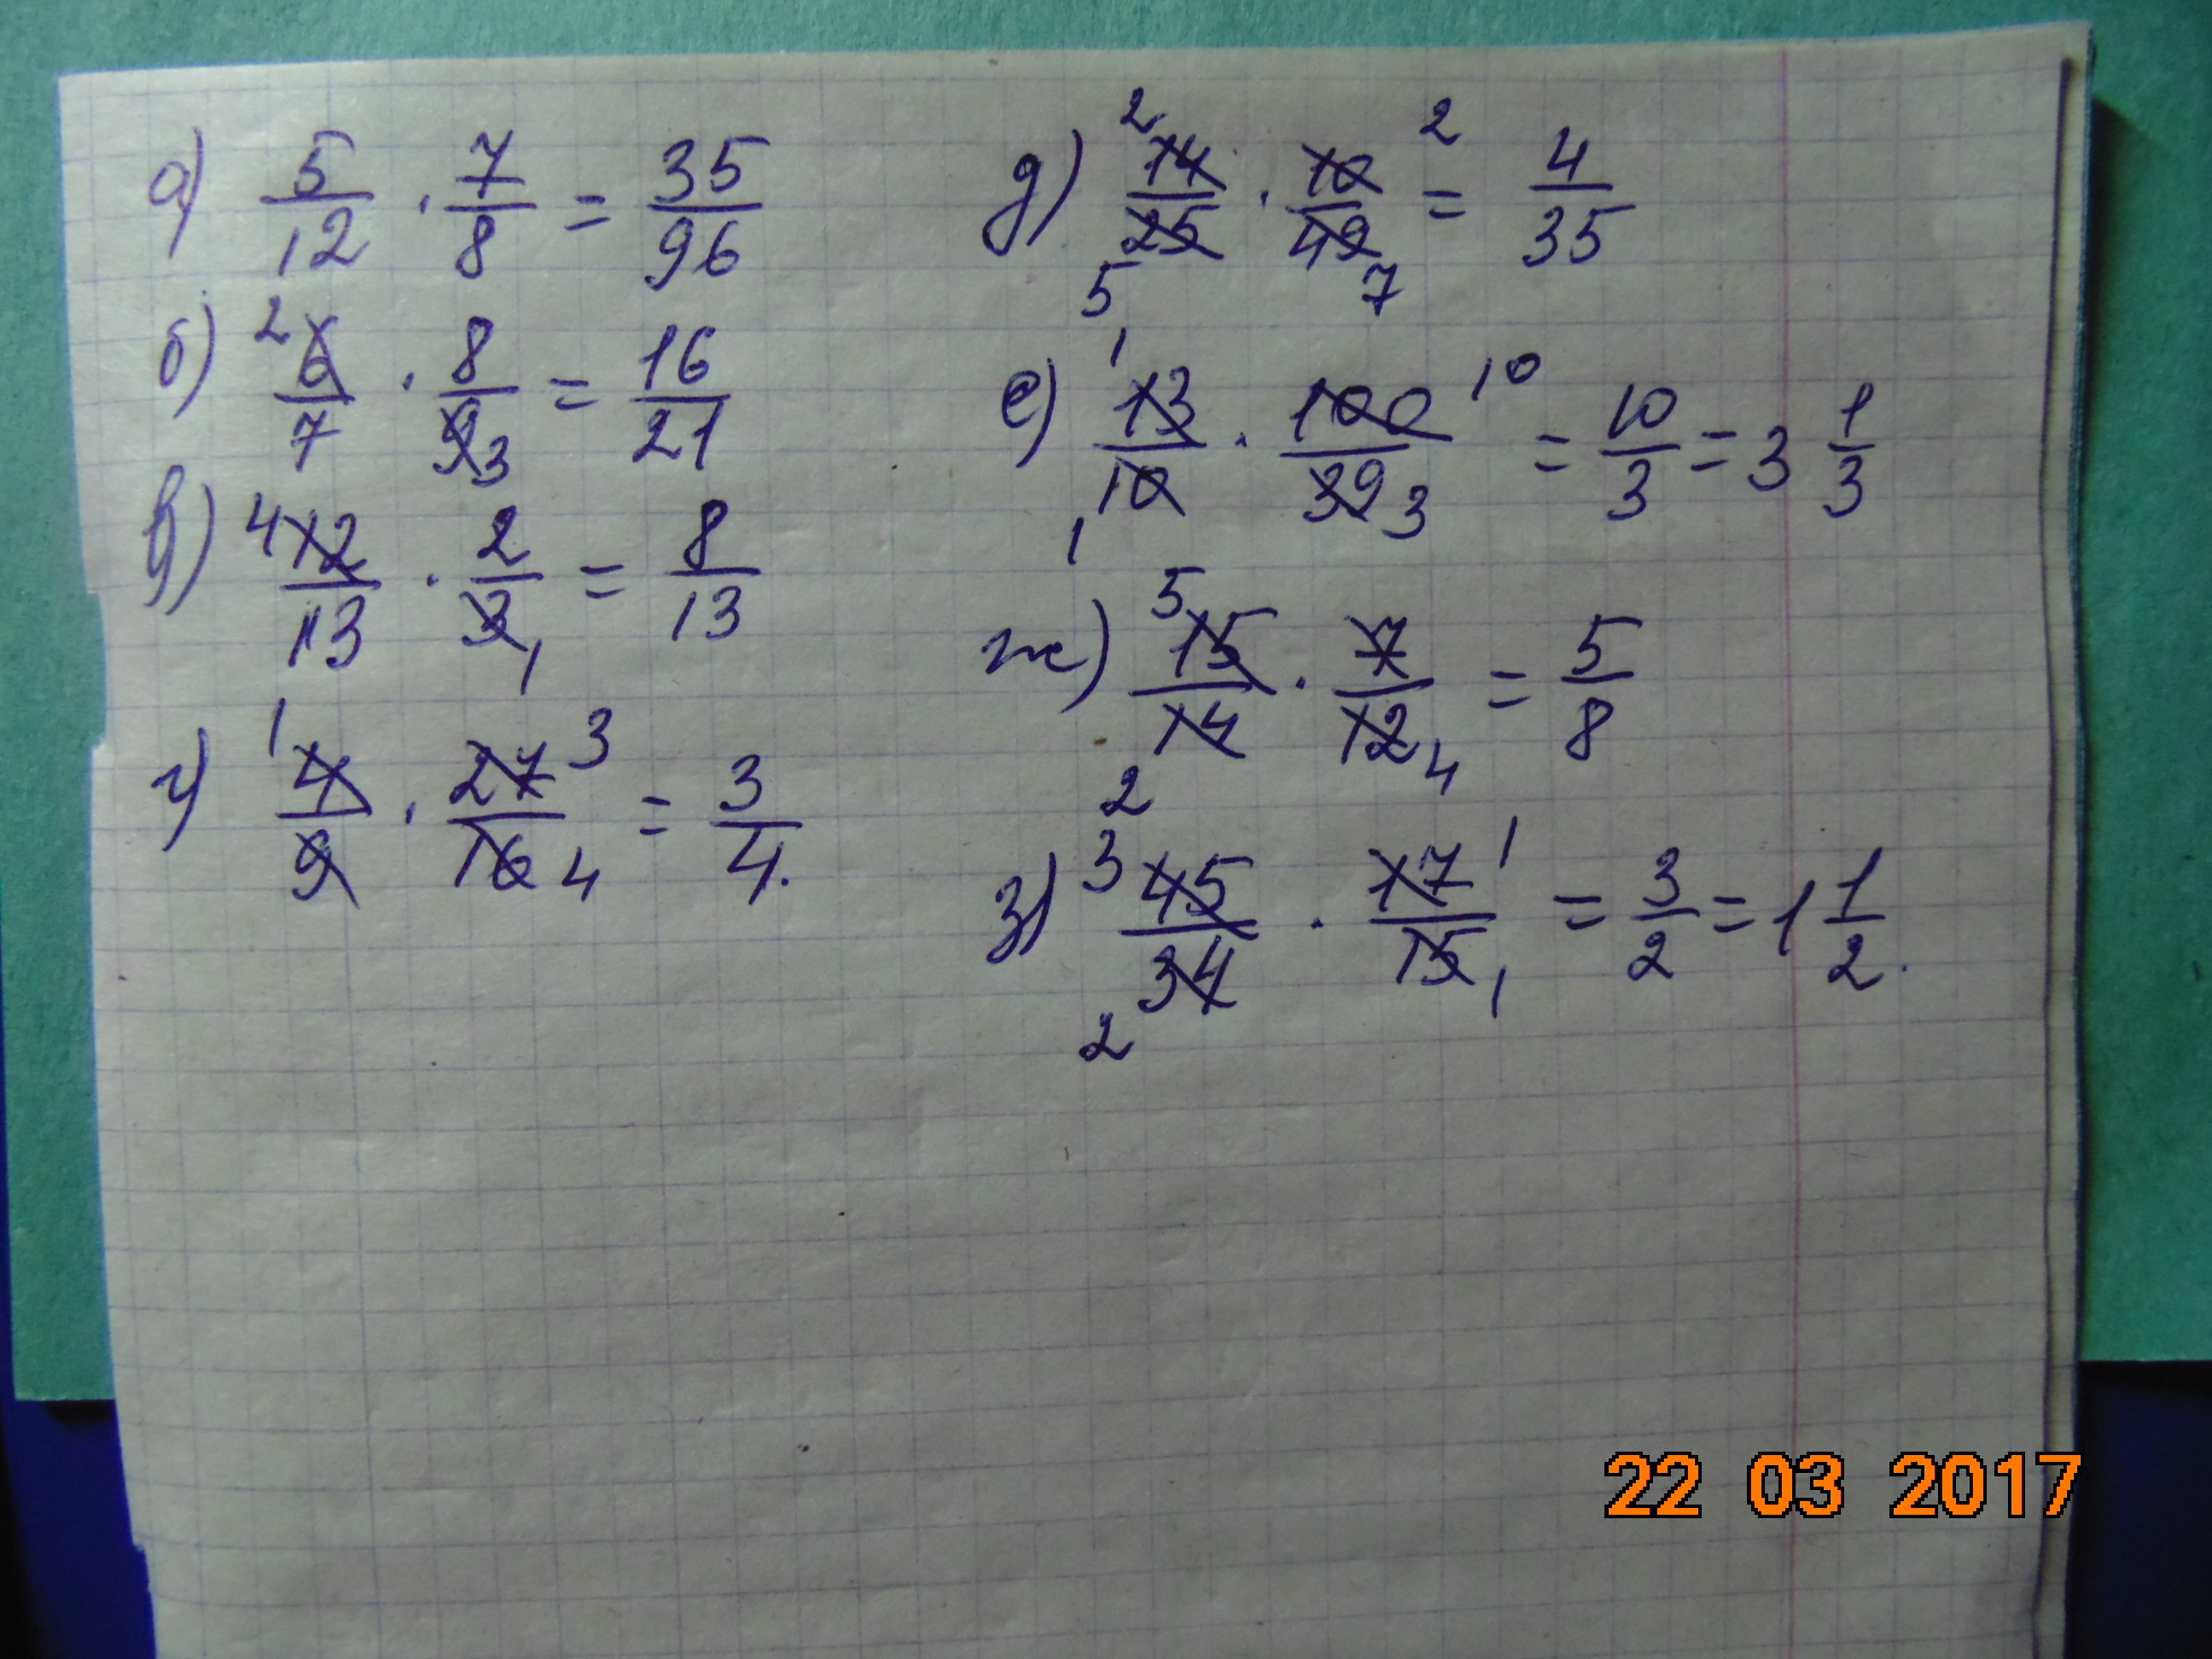 а) 5/12 · 7/8 = 35/96
б) ²6/7 · 8/9₃ = 16/21
в) ⁴12/13 · 2/3₁ = 8/13
г) ¹4/9 · 27³/16₄ = 3/4.
д) ²14/25₅ · 10²/49₇ = 4/35
е) ¹13/10₁ · 100¹⁰/39₃ = 10/3 = 3 1/3
ж) ⁵15/14₂ · 7/12₄ = 5/8
з) ³45/34₂ · 17¹/15₁ = 3/2 = 1 1/2.
22 03 2017